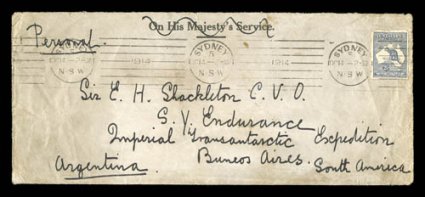 On His Majesty's Service.
Personal.
SYDNEY
N.S.W
1914
SYDNEY
N.S.W
1914
SYDNEY
N.S.W
Sir E. H. Shackleton C.V.O.
S.Y. Endurance
Imperial Transantarctic Expedition
Buneos Aires.
South America
Argentina.